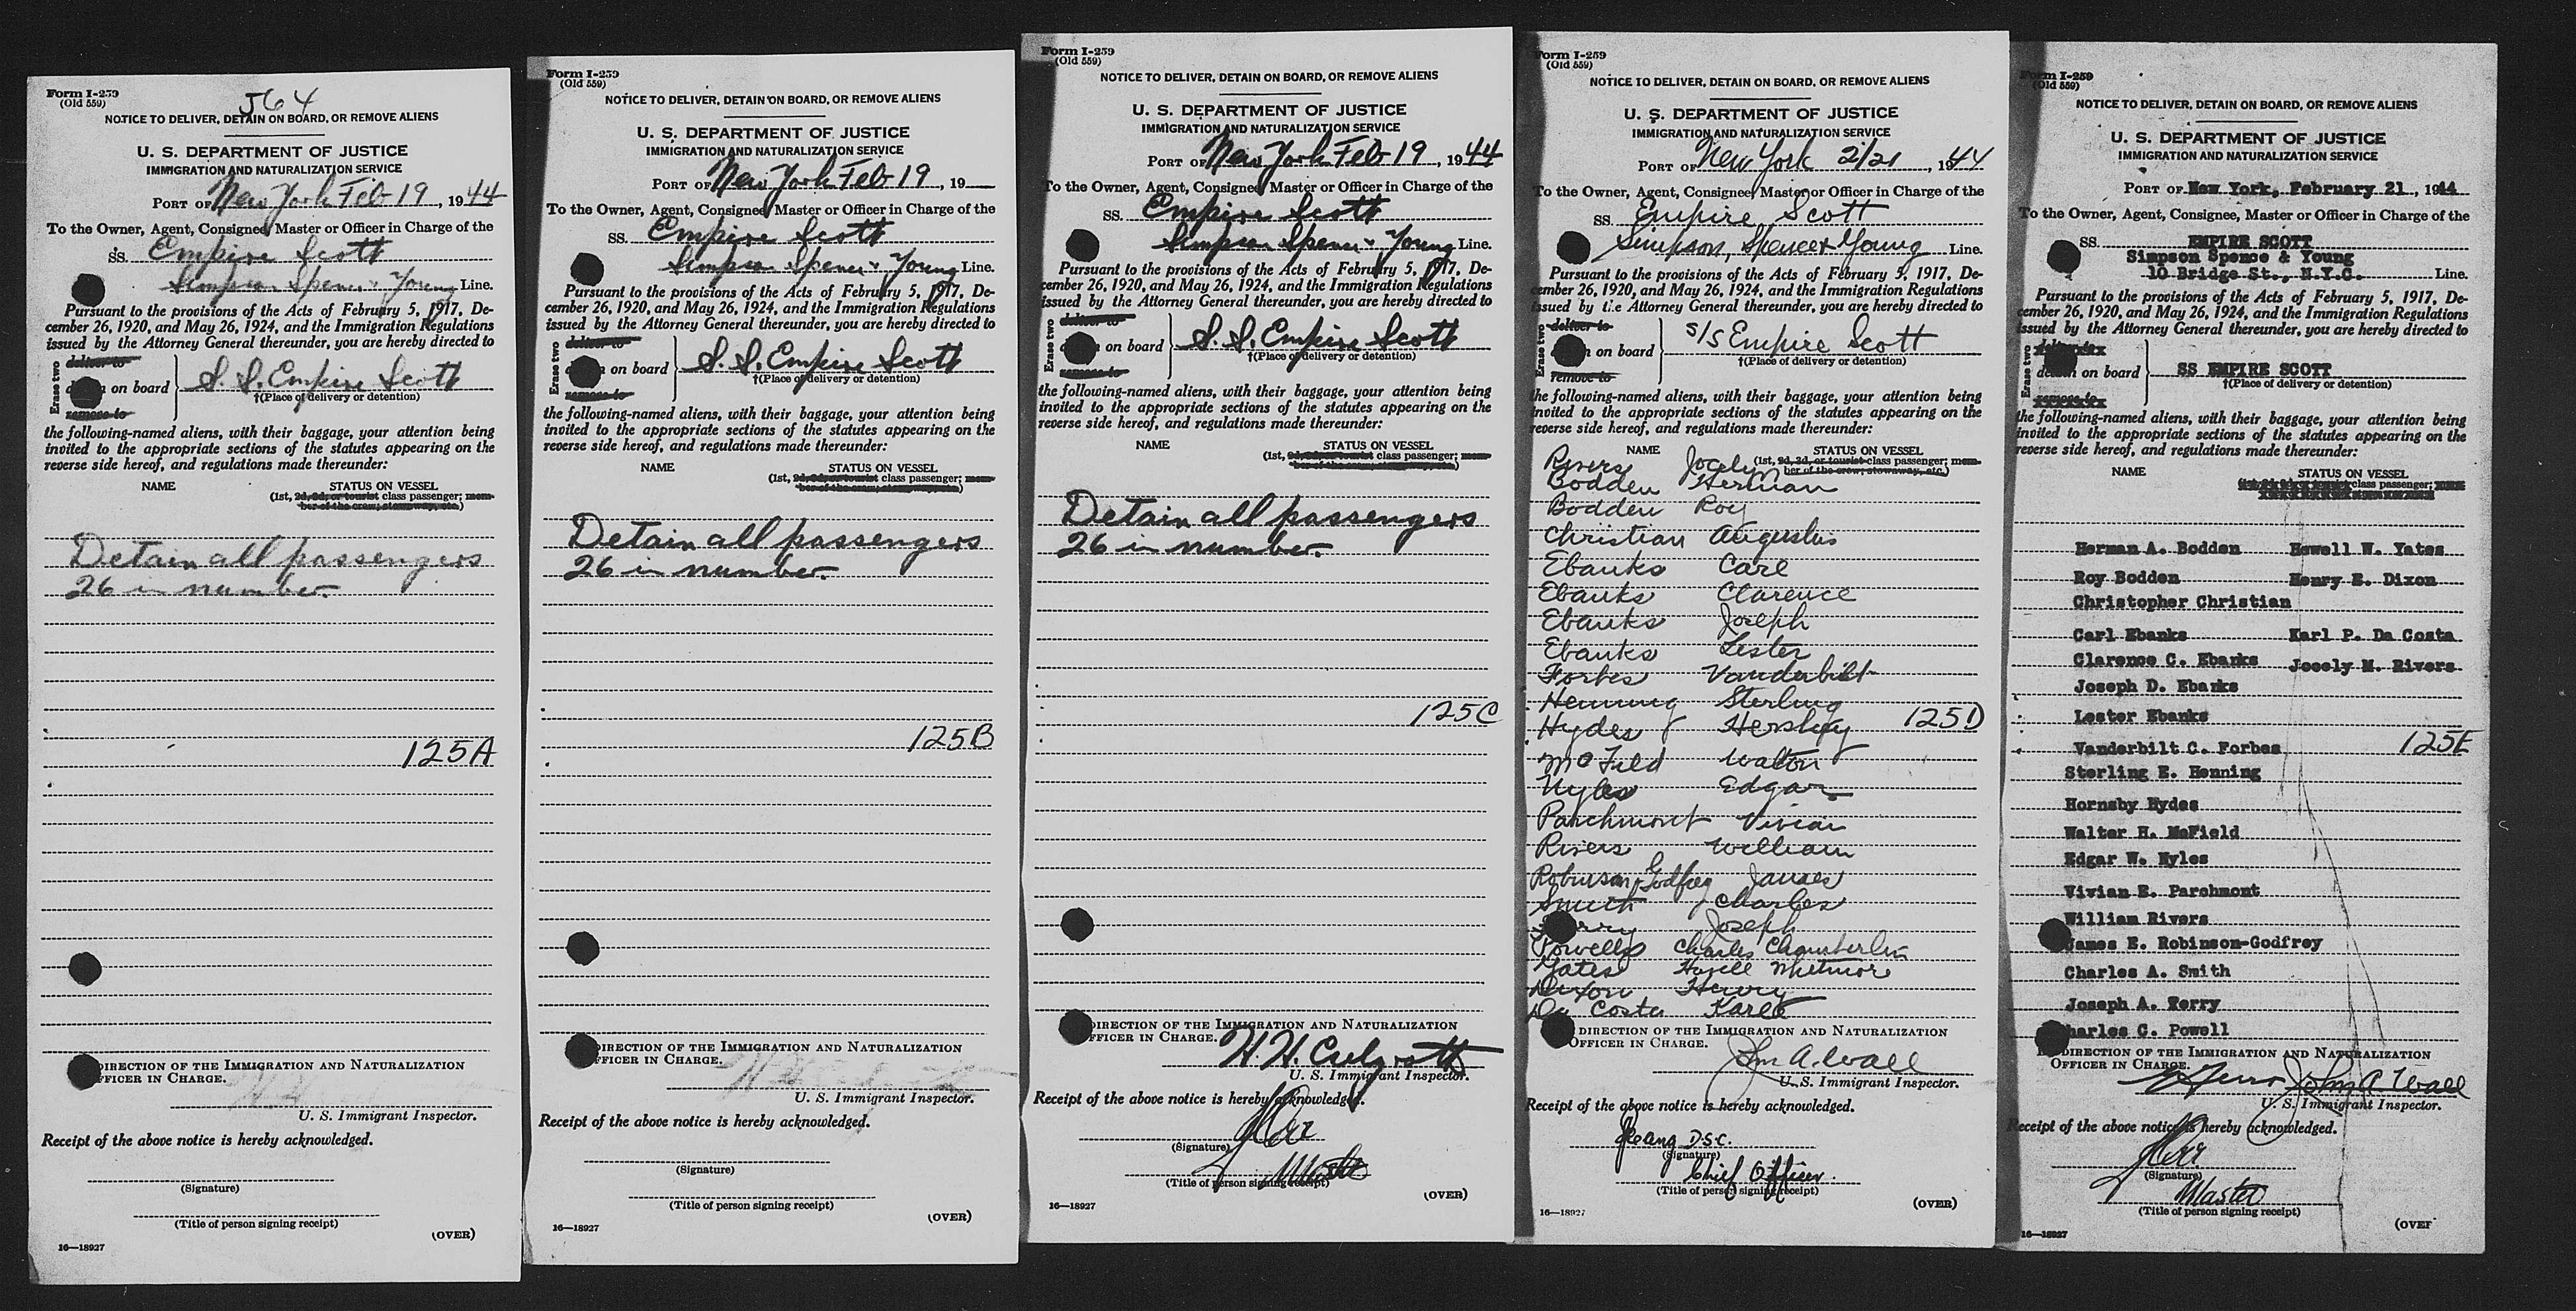 Form I-259
(Old 559)
564
NOTICE TO DELIVER, DETAIN ON BOARD, OR REMOVE ALIENS
U. S. DEPARTMENT OF JUSTICE
IMMIGRATION AND NATURALIZATION SERVICE
PORT OF New York Feb 19, 1944
To the Owner, Agent, Consignee, Master or Officer in Charge of the
SS. Empire Scott
Simpson Spence & Young Line.
Pursuant to the provisions of the Acts of February 5, 1917, De-
cember 26, 1920, and May 26, 1924, and the Immigration Regulations
issued by the Attorney General thereunder, you are hereby directed to
Erase two
deliver to
on board S. S. Empire Scott
remove to
†(Place of delivery or detention)
the following-named aliens, with their baggage, your attention being
invited to the appropriate sections of the statutes appearing on the
reverse side hereof, and regulations made thereunder:
NAME STATUS ON VESSEL
(1st, 2d, 3d, or tourist class passenger; mem-
ber of the crew; stowaway, etc.)
Detain all passengers
26 in number.
125A
DIRECTION OF THE IMMIGRATION AND NATURALIZATION
OFFICER IN CHARGE.
U. S. Immigrant Inspector.
Receipt of the above notice is hereby acknowledged.
(Signature)
(Title of person signing receipt)
(OVER)
16—18927
Form I-259
(Old 559)
NOTICE TO DELIVER, DETAIN ON BOARD, OR REMOVE ALIENS
U. S. DEPARTMENT OF JUSTICE
IMMIGRATION AND NATURALIZATION SERVICE
PORT OF New York Feb 19, 19
To the Owner, Agent, Consignee, Master or Officer in Charge of the
SS. Empire Scott
Simpson Spence & Young Line.
Pursuant to the provisions of the Acts of February 5, 1917, De-
cember 26, 1920, and May 26, 1924, and the Immigration Regulations
issued by the Attorney General thereunder, you are hereby directed to
Erase two
deliver to
on board S. S. Empire Scott
remove to
†(Place of delivery or detention)
the following-named aliens, with their baggage, your attention being
invited to the appropriate sections of the statutes appearing on the
reverse side hereof, and regulations made thereunder:
NAME STATUS ON VESSEL
(1st, 2d, 3d, or tourist class passenger; mem-
ber of the crew; stowaway, etc.)
Detain all passengers
26 in number.
125B
DIRECTION OF THE IMMIGRATION AND NATURALIZATION
OFFICER IN CHARGE.
U. S. Immigrant Inspector.
Receipt of the above notice is hereby acknowledged.
(Signature)
(Title of person signing receipt)
(OVER)
16—18927
Form I-259
(Old 559)
NOTICE TO DELIVER, DETAIN ON BOARD, OR REMOVE ALIENS
U. S. DEPARTMENT OF JUSTICE
IMMIGRATION AND NATURALIZATION SERVICE
PORT OF New York Feb 19, 1944
To the Owner, Agent, Consignee, Master or Officer in Charge of the
SS. Empire Scott
Simpson Spence & Young Line.
Pursuant to the provisions of the Acts of February 5, 1917, De-
cember 26, 1920, and May 26, 1924, and the Immigration Regulations
issued by the Attorney General thereunder, you are hereby directed to
Erase two
deliver to
on board S. S. Empire Scott
remove to
†(Place of delivery or detention)
the following-named aliens, with their baggage, your attention being
invited to the appropriate sections of the statutes appearing on the
reverse side hereof, and regulations made thereunder:
NAME STATUS ON VESSEL
(1st, 2d, 3d, or tourist class passenger; mem-
ber of the crew; stowaway, etc.)
Detain all passengers
26 in number.
125C
DIRECTION OF THE IMMIGRATION AND NATURALIZATION
OFFICER IN CHARGE.
H. H.
U. S. Immigrant Inspector.
Receipt of the above notice is hereby acknowledged.
(Signature)
Master
(Title of person signing receipt)
(OVER)
16—18927
Form I-259
(Old 559)
NOTICE TO DELIVER, DETAIN ON BOARD, OR REMOVE ALIENS
U. S. DEPARTMENT OF JUSTICE
IMMIGRATION AND NATURALIZATION SERVICE
PORT OF New York 2/21, 1944
To the Owner, Agent, Consignee, Master or Officer in Charge of the
SS. Empire Scott
Simpson, Spence & Young Line.
Pursuant to the provisions of the Acts of February 5, 1917, De-
cember 26, 1920, and May 26, 1924, and the Immigration Regulations
issued by the Attorney General thereunder, you are hereby directed to
Erase two
deliver to
on board S/S Empire Scott
remove to
†(Place of delivery or detention)
the following-named aliens, with their baggage, your attention being
invited to the appropriate sections of the statutes appearing on the
reverse side hereof, and regulations made thereunder:
NAME STATUS ON VESSEL
(1st, 2d, 3d, or tourist class passenger; mem-
ber of the crew; stowaway, etc.)
Rivers Jocely
Bodden Herman
Bodden Roy
Christian Augustus
Ebanks Carl
Ebanks Clarence
Ebanks Joseph
Ebanks Lester
Forbes Vanderbilt
Henning Sterling
Hydes 125D
McField Walton
Hyles Edgar
Parchmont Vivian
Rivers William
Robinson Godfrey James
Smith Charles
Joseph
Powells Charles Chamberlin
Yates Whitmore
Dixon Henry
Da Costa Karl
DIRECTION OF THE IMMIGRATION AND NATURALIZATION
OFFICER IN CHARGE.
Jno A. Wall
U. S. Immigrant Inspector.
Receipt of the above notice is hereby acknowledged.
D.S.C.
(Signature)
Chief Officer.
(Title of person signing receipt)
(OVER)
16—18927
Form I-259
(Old 559)
NOTICE TO DELIVER, DETAIN ON BOARD, OR REMOVE ALIENS
U. S. DEPARTMENT OF JUSTICE
IMMIGRATION AND NATURALIZATION SERVICE
PORT OF New York, February 21, 1944
To the Owner, Agent, Consignee, Master or Officer in Charge of the
SS. EMPIRE SCOTT
Simpson Spence & Young
10 Bridge St., N.Y.C. Line.
Pursuant to the provisions of the Acts of February 5, 1917, De-
cember 26, 1920, and May 26, 1924, and the Immigration Regulations
issued by the Attorney General thereunder, you are hereby directed to
Erase two
on board SS EMPIRE SCOTT
†(Place of delivery or detention)
the following-named aliens, with their baggage, your attention being
invited to the appropriate sections of the statutes appearing on the
reverse side hereof, and regulations made thereunder:
NAME STATUS ON VESSEL
class passenger;
Herman A. Bodden Howell W. Yates
Roy Bodden Henry E. Dixon
Christopher Christian
Carl Ebanks Karl P. Da Costa
Clarence C. Ebanks Jocely M. Rivers
Joseph D. Ebanks
Lester Ebanks
Vanderbilt C. Forbes 125E
Sterling E. Henning
Hornsby Hydes
Walter H. McField
Edgar W. Hyles
Vivian E. Parchmont
William Rivers
James E. Robinson-Godfrey
Charles A. Smith
Joseph A. Terry
Charles C. Powell
DIRECTION OF THE IMMIGRATION AND NATURALIZATION
OFFICER IN CHARGE.
John A Wall
U. S. Immigrant Inspector.
Receipt of the above notice is hereby acknowledged.
(Signature)
Master
(Title of person signing receipt)
(OVER
16—18927